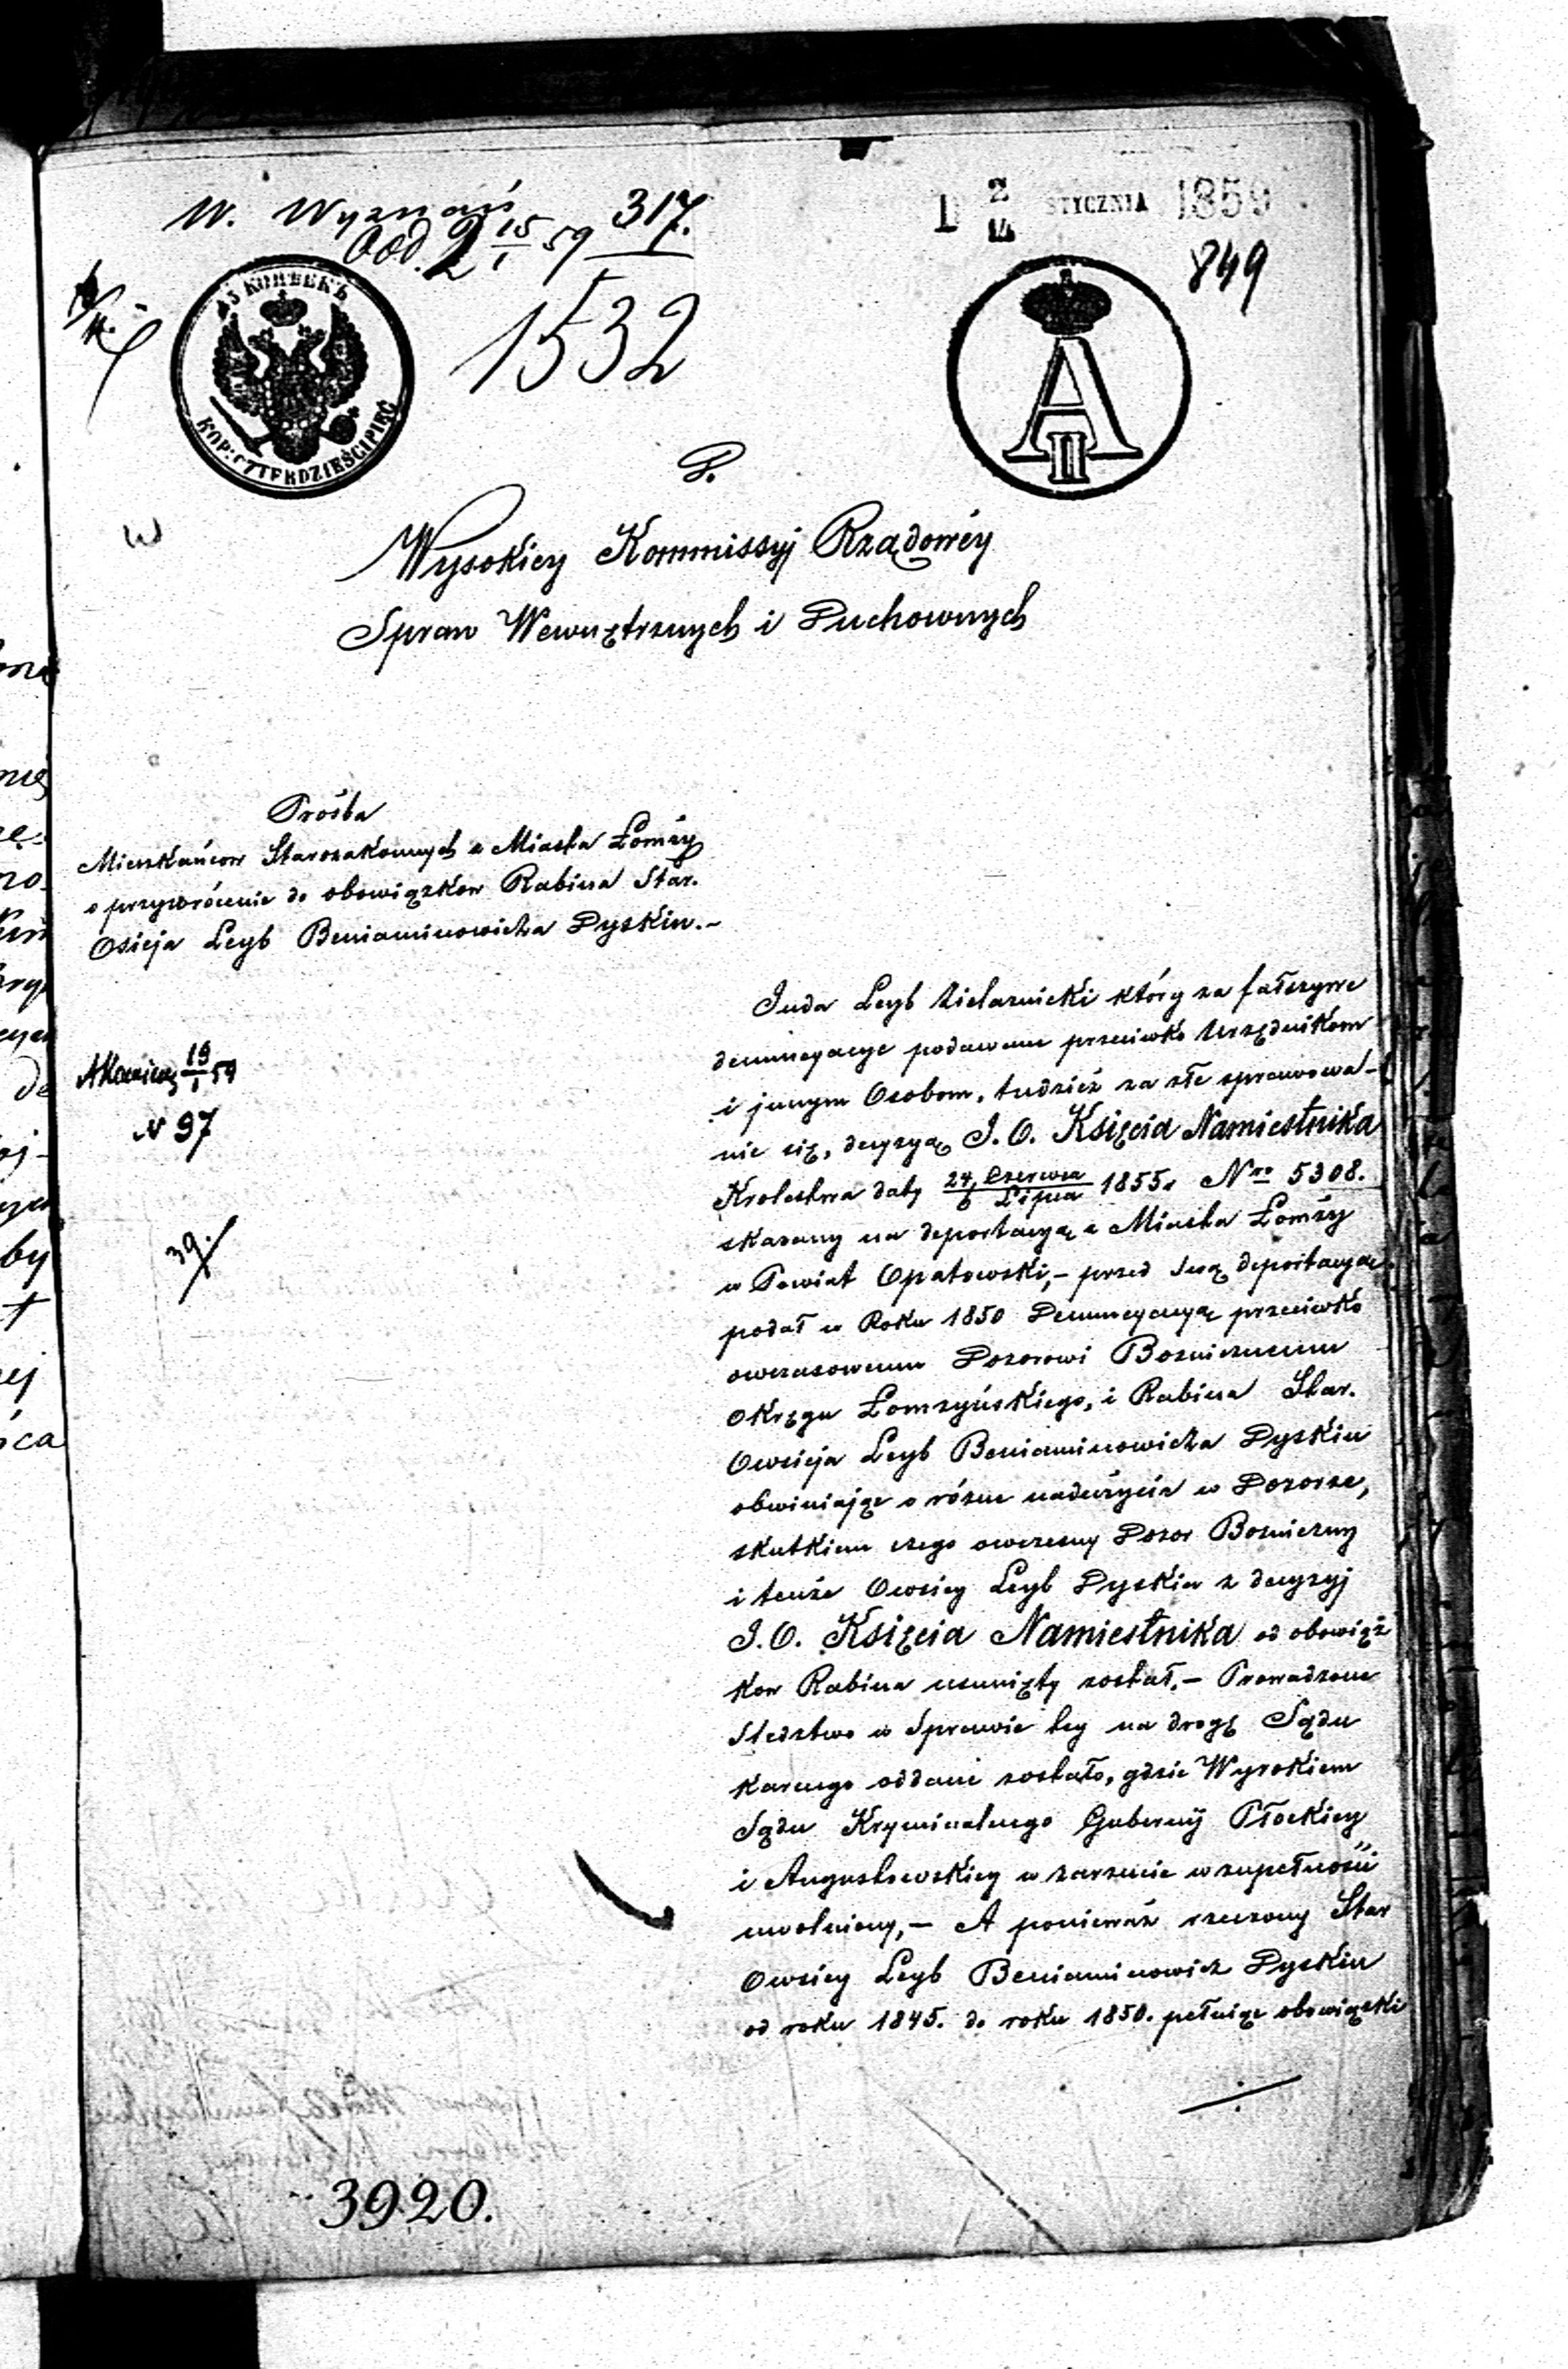 W. Wyznań 317.
Odd. 2 15/1 59
D 2/14 STYCZNIA 1859
849
45 КОПѢЕКЪ
KOP: CZTERDZIEŚCI PIĘĆ
1532
A II
D.
Wysokiey Kommissyj Rządowéy
Spraw Wewnętrznych i Duchownych
Prośba
Mieszkańcow Starozakonnych z Miasta Łomży
o przywrócenie do obowiązkow Rabina Star.
Osieja Leyb Beniaminowicza Dyskin.–
19/1 59
N 97
39.
Juda Leyb Zielaznicki który za fałszywe
denuncyacye podawane przeciwko Urzędnikom
i jnnym Osobom, tudzież za złe sprawowa-
nie się, decyzyą J. O. Księcia Namiestnika
Krolestwa daty 24 Czerwca/6 Lipca 1855 r. Nro 5308.
skazany na deportacyą z Miasta Łomży
w Powiat Opatowski,– przed swą deportacyą
podał w Roku 1850 Denuncyacyą przeciwko
owczasowemu Dozorowi Boznicznemu
Okręgu Łomzyńskiego, i Rabina Star.
Owsieja Leyb Beniaminowicza Dyskin
obwiniając o rózne nadużycia w Dozorze,
skutkiem czego owczesny Dozor Bozniczny
i tenże Owsiey Leyb Dyskin z decyzyj
J. O. Księcia Namiestnika od obowiąz
kow Rabina usunięty został,– Prowadzone
Sledztwo w Sprawie tey na drogę Sądu
karnego oddane zostało, gdzie Wyrokiem
Sądu Kryminalnego Gubernij Płockiey
i Augustowskiey w zarzucie w zupełności
uwolniony,– A ponieważ rzeczony Star
Owsiey Leyb Beniaminowicz Dyskin
od roku 1845. do roku 1850. pełniąc obowiązki
3920.